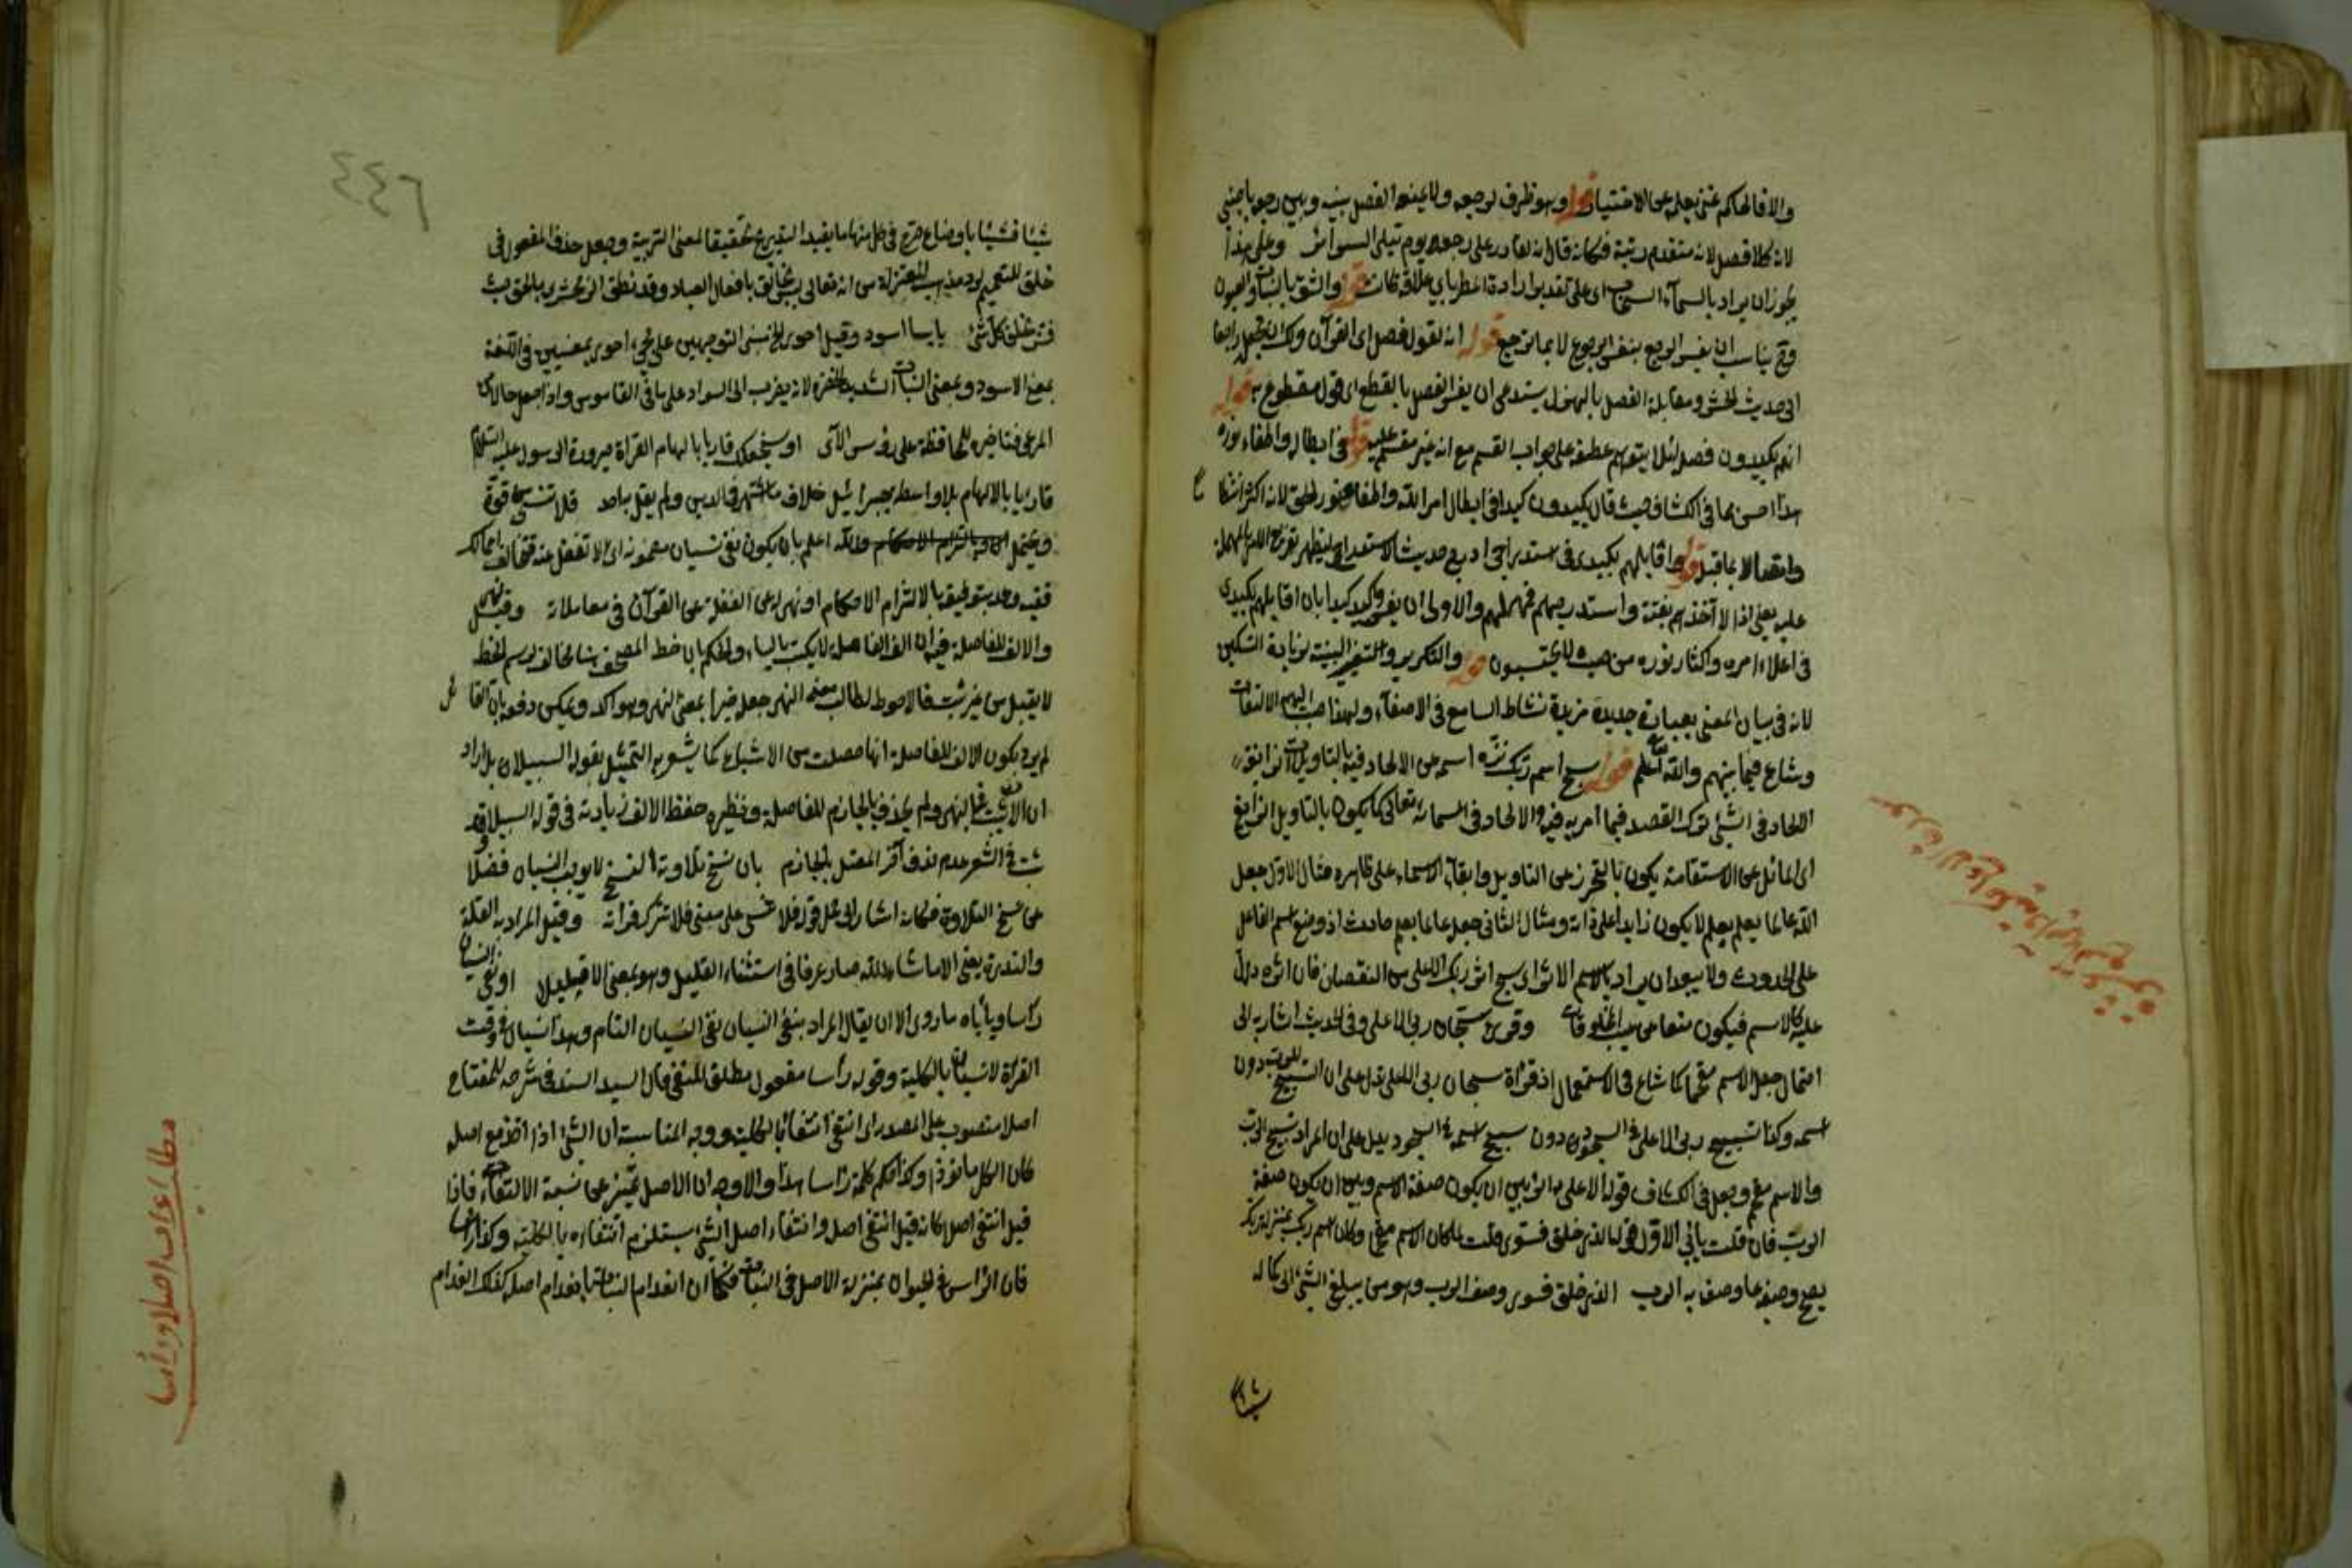 والا فالحاكم غني بعلمه عن الاختبار قوله وهو ظرف لرجعه ولا يمنعه الفصل بينه وبين رجعه باجنبي
لانه كلا فصل لانه متقدم رتبة فكانه قال انه لقادر على رجعه يوم تبلى السرائر وعلى هذا
يجوز ان يراد بالسماء السحاب اى على تقدير ارادة المطر باي علاقة كانت قوله والشق بالنبات والعيون
وح يناسب ان يفسر الرجع بنفس الرجوع لا بما ترجع قوله انه لقول فصل اى القرآن
الى حديث الحشر ومقابلة الفصل بالهزل يستدعى ان يفسر الفصل بالقطع اى قول مقطوع به قوله
انهم يكيدون فصل لئلا يتوهم عطفه على جواب القسم مع انه غير مقسم عليه قوله في ابطاله واطفاء نوره
هذا احسن مما في الكشاف حيث قال يكيدون كيدا في ابطال امر الله واطفاء نور الحق لانه اكثر
قوله واقابلهم بكيدى في استدراجى
عليه يعنى اذا لا آخذهم بغتة واستدرجهم فمهلهم والاولى ان يفسر واكيد كيدا بان اقابلهم بكيدى
في اعلاء امره واكثار نوره من حيث لا يحتسبون قوله والتكرير والتغيير البنية لزيادة التسكين
لانه في بيان المعنى بعبارة جديدة مزيدة نشاط السامع في الاصغاء ولهذا الالتفات
وشاع فيما بينهم والله اعلم قوله سبح اسم ربك نزه اسمه عن الالحاد فيه بالتاويلات الزايغة
الالحاد في الشئ ترك القصد فيما امر به فيه والالحاد في اسمائه تعالى كما يكون بالتاويل الزايغ
اى المائل عن الاستقامة يكون بالتحرز عن التاويل وابقاء الاسماء على ظاهره مثال الاول جعل
الله عالما يعلم بعلم لا يكون زايدا على ذاته ومثال الثاني جعل عالما بعلم حادث اذ وضع اسم الفاعل
على الحدوث ولا يبعد ان يراد بالاسم الاثر اى سبح اثر ربك الاعلى من النقصان فان اثره دال
عليه كالاسم فيكون منعا عن عيب المخلوقات وقرئ سبحان ربى الاعلى وفي الحديث اشار به الى
احتمال جعل الاسم مقحما كما شاع في الاستعمال اذ قراءة سبحان ربى الاعلى تدل على ان التسبيح للرب دون
اسمه وكذا تسبيح ربى الاعلى في السجود دون سبح اسمه في السجود يدل على ان المراد تسبيح الرب
والاسم مقحم وجعل في الكشاف قوله الاعلى دائرا بين ان يكون صفة الاسم وبين ان يكون صفة
الرب فان قلت يأبى الاول قوله الذى خلق فسوى قلت لما كان الاسم مقحما وكان اسم ربك بمنزلة ربك
يصح وصفه بما وصف به الرب الذى خلق فسوى وصف الرب وهو من يبلغ الشئ الى كماله
شيئا
٤٤٦
شيئا فشيئا باوضاع في كل منها ما يفيد التدريج تحقيقا لمعنى التربية وجعل حذف المفعول في
خلق للتعميم لرد مذهب المعتزلة من انه تعالى ليس بخالق بافعال العباد وقد نطق الزمخشرى بالحق حيث
فسر خلق كل شئ يابسا اسود وقيل احوى الخ مبنى التوجيهين على مجئ احوى بمعنيين في اللغة
بمعنى الاسود وبمعنى النبات الشديد الخضرة لانه يضرب الى السواد على ما في القاموس واذا جعل حالا
المرعى فتاخيره للمحافظة على رؤس الآى او سنجعلك قاريا بالهام القراءة صيرورة الرسول عليه السلام
قاريا بالالهام بلا واسطة جبرائيل خلاف ما اشتهر في الدين ولم يقل به احد فلا تنسى قوة
ويحتمل والله اعلم بان يكون نفى نسيان مضمونه اى لا تغفل عنه فتخالفه في اعمالك
ففيه وعد بتوفيقه بالالتزام الاحكام او نهى له عن الغفلة عن القرآن في معاملاته وقيل نهى
والالف للفاصلة فيه ان الف الفاصلة لا يكتب بالياء والحكم بان خط المصحف مما يخالف رسم الخط
لا يقبل من غير ثبت فالاحوط لطالب معنى النهى جعل خبرا بمعنى النهى وهو آكد ويمكن دفعه بان القائل
لم يرد بكون الالف للفاصلة انها حصلت من الاشباع كما يشعر به التمثيل بقوله السبيلا بل اراد
ان الالف ثبت في النهى ولم يحذف بالجازم للفاصلة ونظيره حفظ الالف زيادته في قوله السبيلا وقد
ثبت في الشعر عدم حذف آخر المعتل بالجازم بان نسخ تلاوته النسخ لا يوجب النسيان فضلا
عن نسخ التلاوة فكانه اشار الى حمل قوله فلا تنسى على معنى فلا تترك قراءته وقيل المراد به القلة
والندرة يعنى الا ما شاء الله صار عرفا في استثناء القليل وهو بمعنى الا قليلا او نفى النسيان
رأسا ويأباه ما روى الا ان يقال المراد بنفى النسيان نفى النسيان التام وهذا نسيان في وقت
القراءة لا نسيان بالكلية وقوله رأسا مفعول مطلق للنفى قال السيد السند في شرحه للمفتاح
اصلا منصوب على المصدر اى انتفى انتفاء بالكلية ووجه المناسبة ان الشئ اذا اخذ مع اصله
كان الكل ماخوذا وكذا حكم كلمة رأسا هذا والاوجه ان الاصل تمييز عن نسبة الانتفاء فاذا
قيل انتفى اصلا كانه قيل انتفى اصله وانتفاء اصل الشئ يستلزم انتفاءه بالكلية وكذا رأسا
فان الرأس في الحيوان بمنزلة الاصل في النبات فكما ان انعدام النبات بانعدام اصله كذلك انعدام
مطلب اعراب اصلا ورأسا